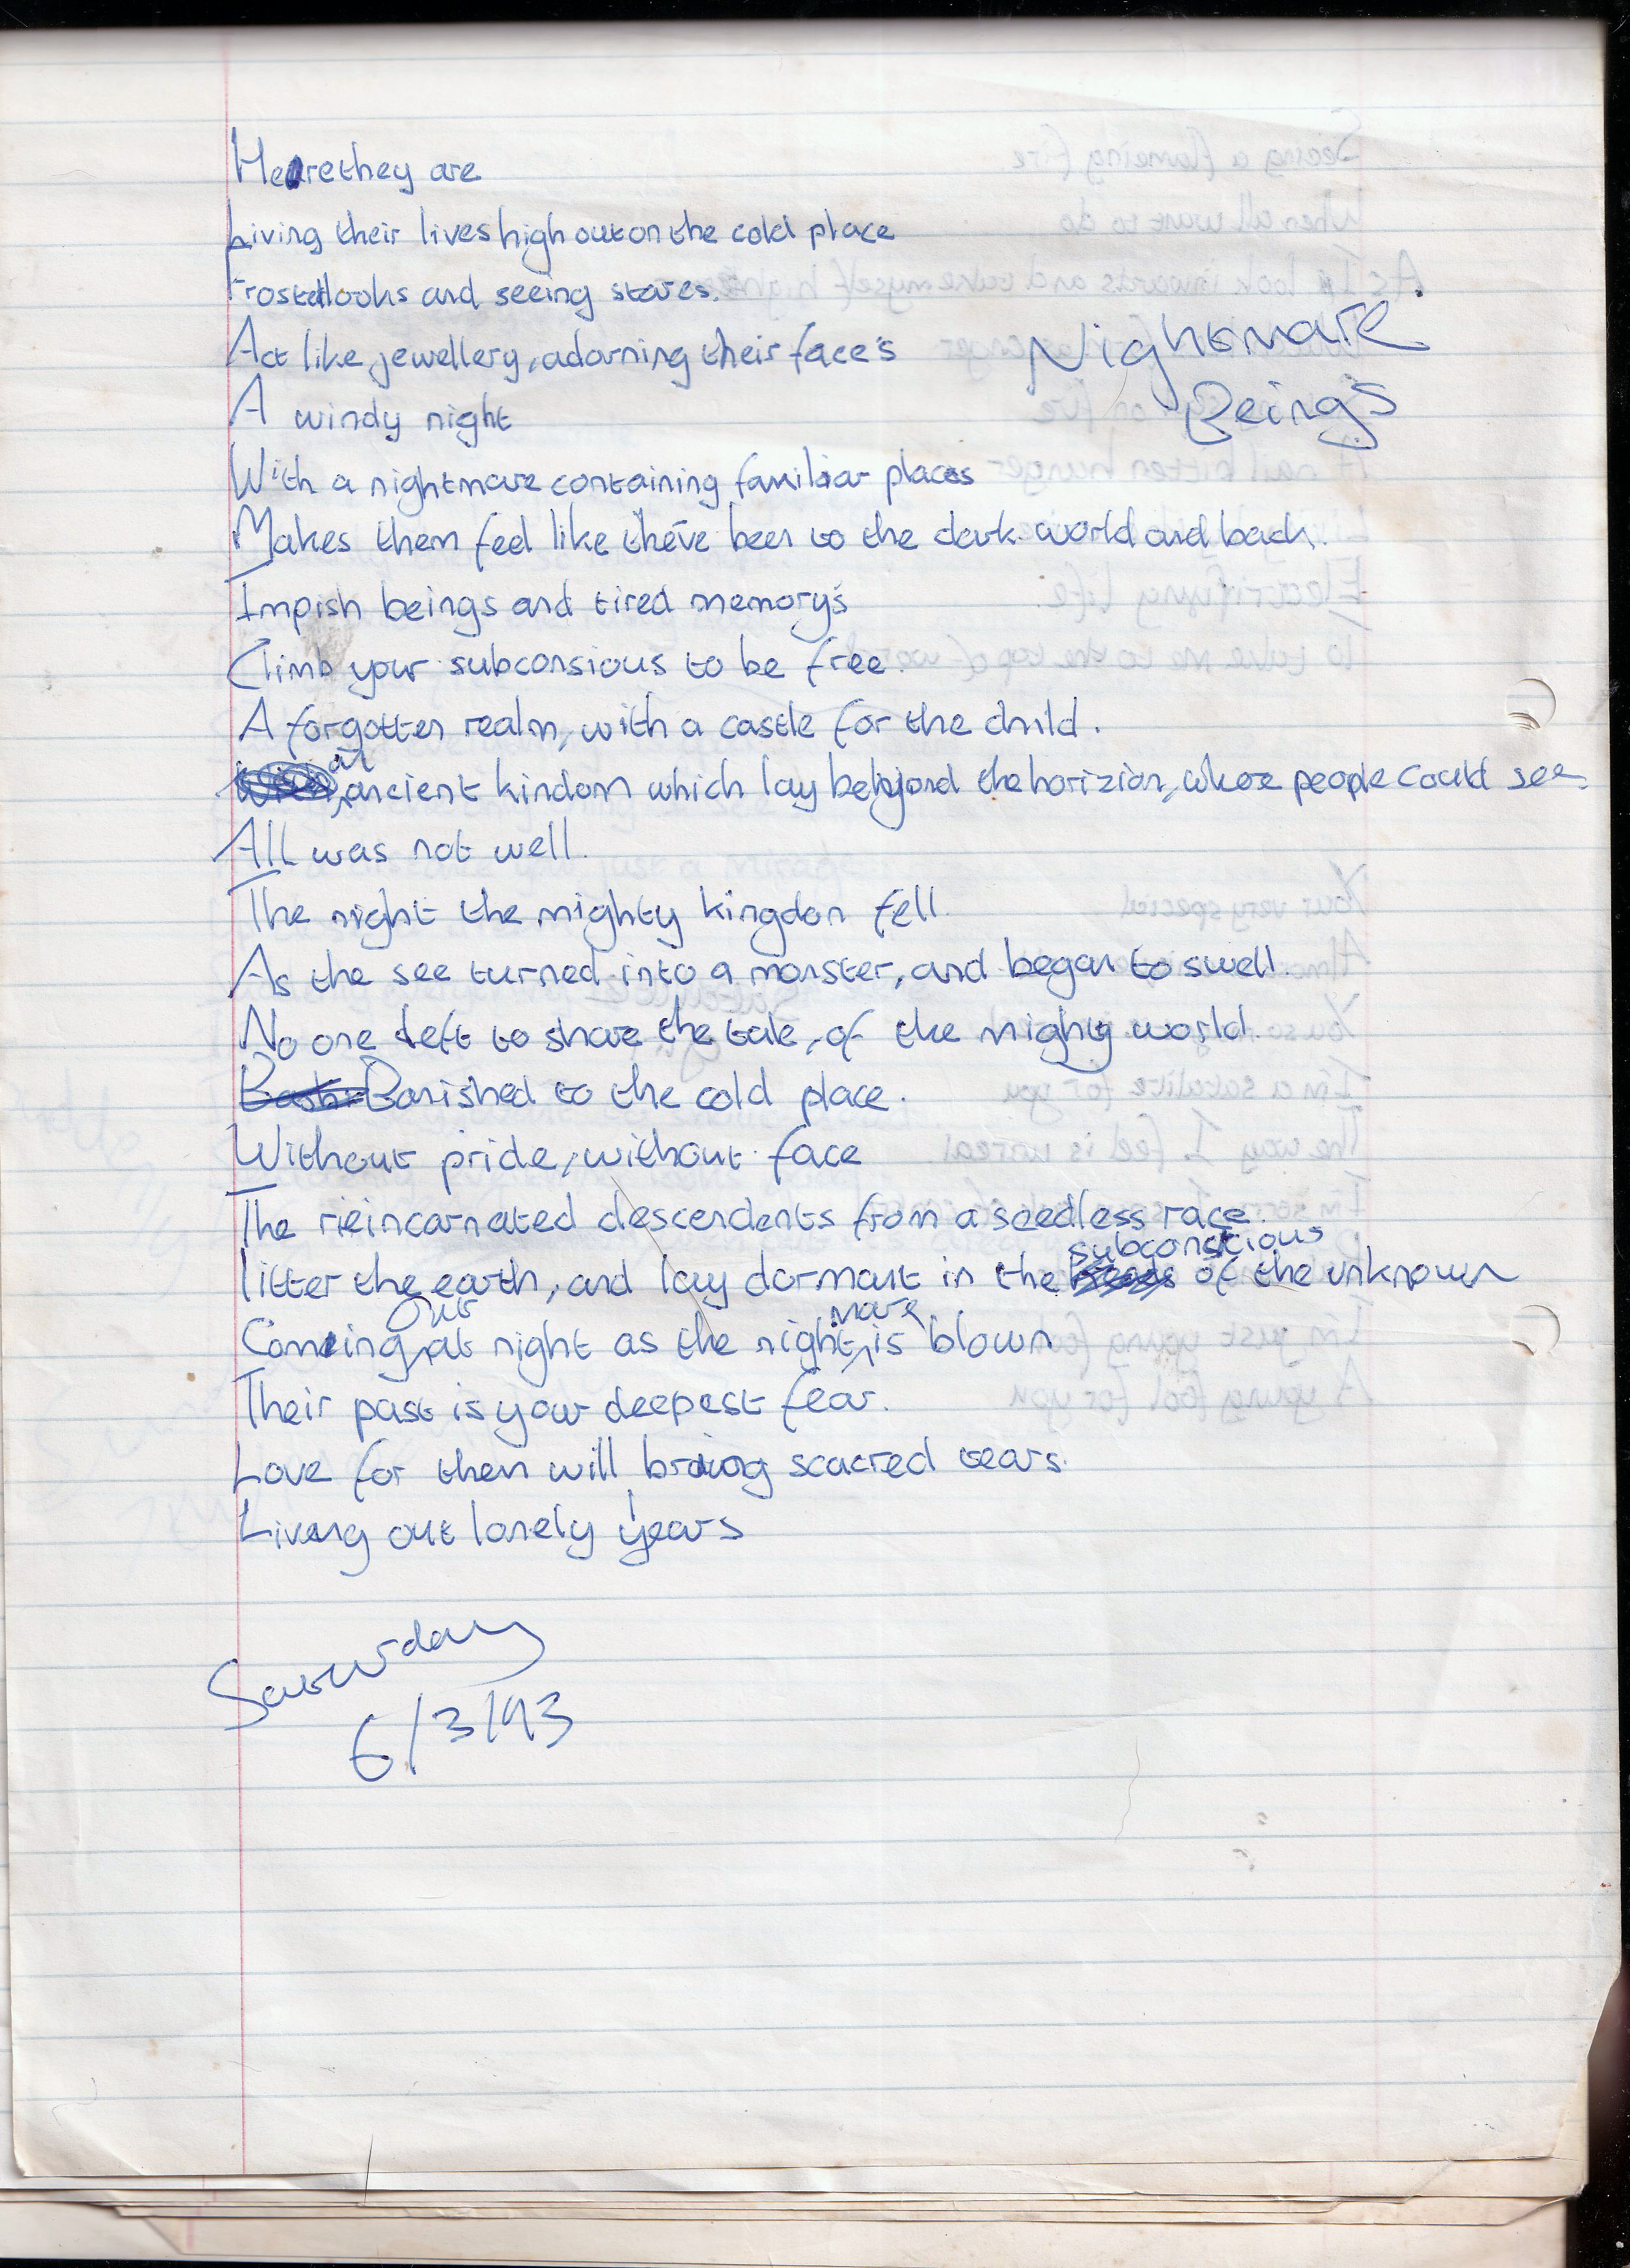 Here they are
Living their lives high out on the cold place
Frosted looks and seeing stares.
Act like jewellery, adorning their face's
Nightmare
Beings
A windy night
With a nightmare containing familiar places
Makes them feel like the've been to the dark world and back.
Impish beings and tired memory's
Climb your subconsious to be free.
A forgotten realm, with a castle for the child.
an ancient kindom which lay beyond the horizion, where people could see.
All was not well.
The night the mighty kingdon fell.
As the see turned into a monster, and began to swell.
No one left to share the tale, of the mighty world.
Banished to the cold place.
Without pride, without face
The rieincarnated descendents from a seedless race.
litter the earth, and lay dormant in the subconscious of the unknown
Coming out at night as the nightmare is blown
Their past is your deepest fear.
Love for them will bring scacred tears.
Living out lonely years
Saturday
6/3/93